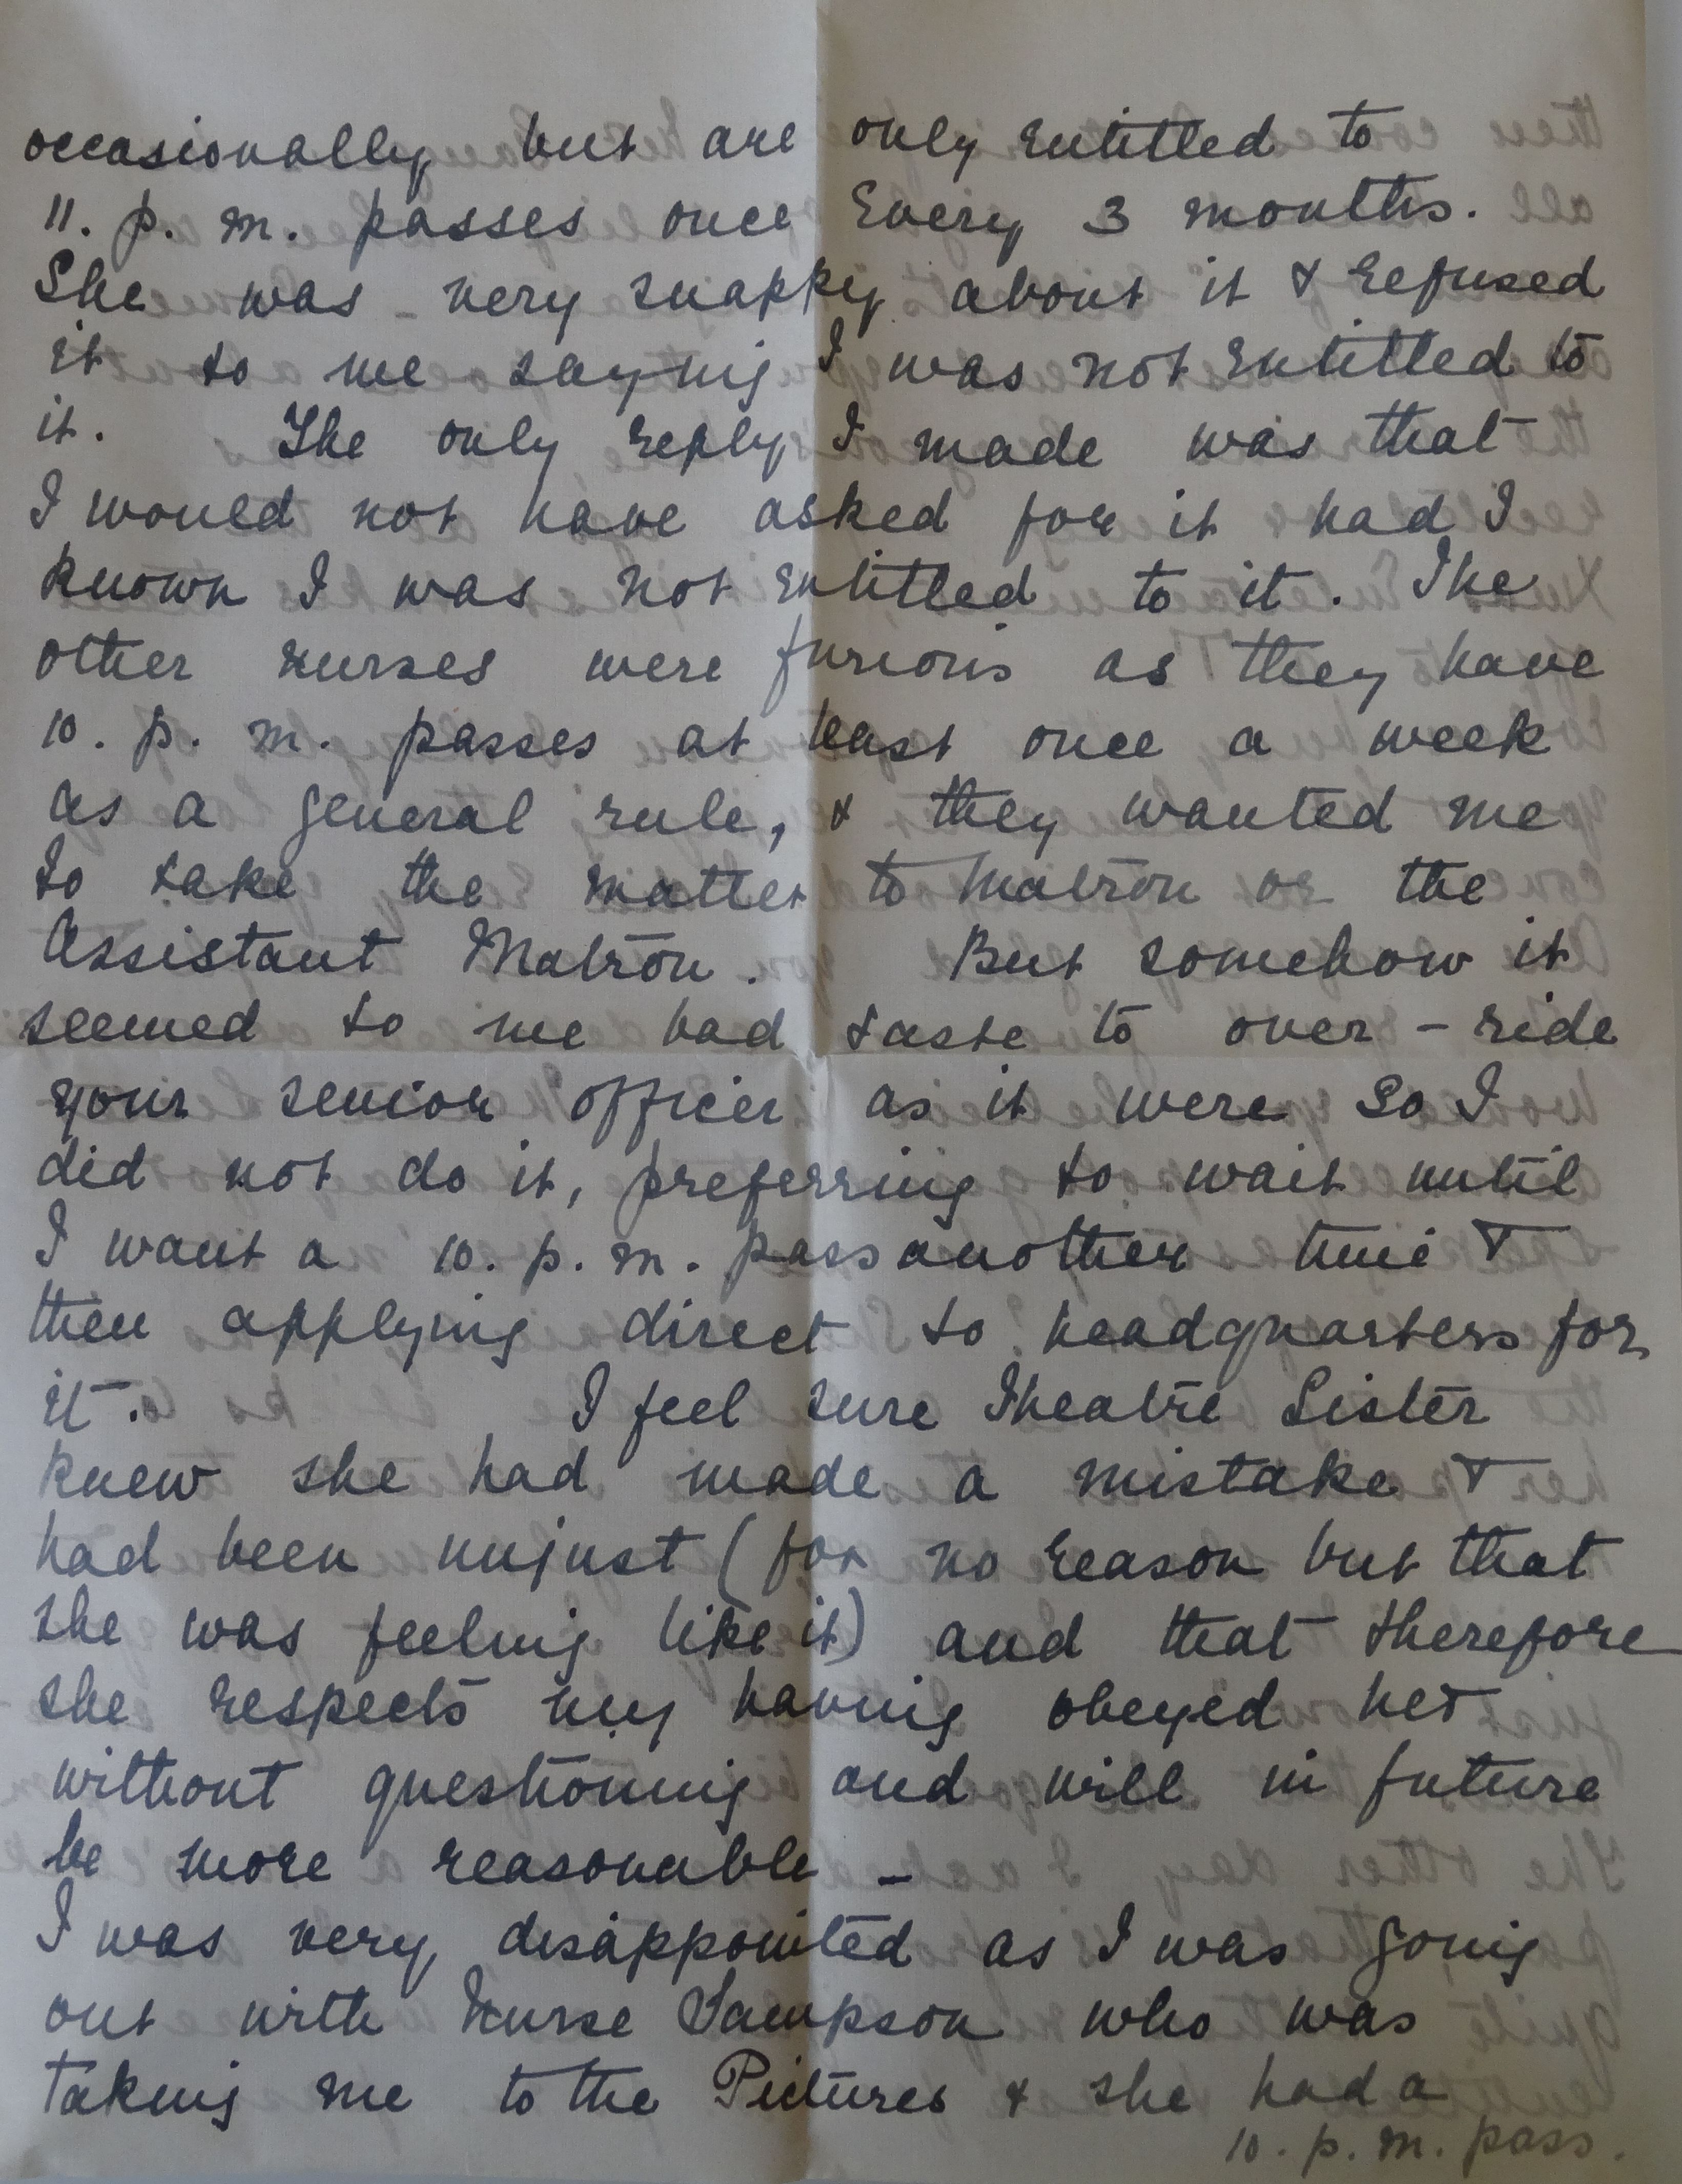 occasionally but are only entitled to
11. p. m. passes once every 3 months.
She was - very snappy about it & refused
it to me saying I was not entitled to
it. The only reply I made was that
I would not have asked for it had I
known I was not entitled to it. The
other nurses were furious as they have
10. p. m. passes at least once a week
as a general rule, & they wanted me
to take the matter to Matron or the
Assistant Matron. But somehow it
seemed to me bad taste to over - ride
your senior officer as it were so I
did not do it, preferring to wait until
I want a 10. p. m. pass another time &
then applying direct to headquarters for
it. I feel sure Theatre Sister
knew she had made a mistake &
had been unjust (for no reason but that
she was feeling like it) and that therefore
she respects my having obeyed her
without questioning and will in future
be more reasonable -
I was very disappointed as I was going
out with Nurse Sampson who was
taking me to the Pictures & she had a
10. p. m. pass.